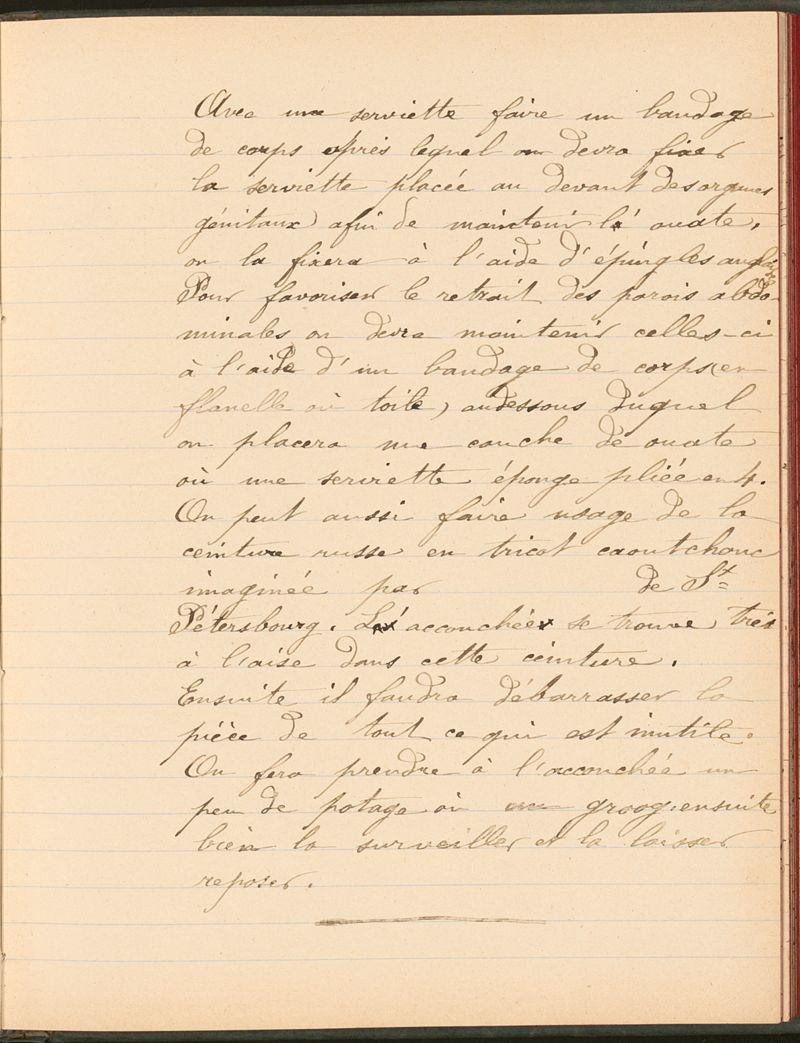 Avec une serviette faire un bandage
de corps après lequel on devra fixer
la serviette placée au devant des organes
génitaux afin de maintenir l'ouate,
on la fixera à l'aide d'épingles anglaise
Pour favoriser le retrait des parois abdo-
minales on devra maintenir celles-ci
à l'aide d'un bandage de corps (en
flanelle où toile) audessous duquel
on placera une couche de ouate
où une serviette éponge pliée en 4.
On peut aussi faire usage de la
ceinture russe en tricot caoutchouc
imaginée par de St
Pétersbourg. L'accouchée se trouve très
à l'aise dans cette ceinture.
Ensuite il faudra débarrasser la
pièce de tout ce qui est inutile.
On fera prendre à l'accouchée un
peu de potage où un groog. ensuite
bien la surveiller et la laisser
reposer.